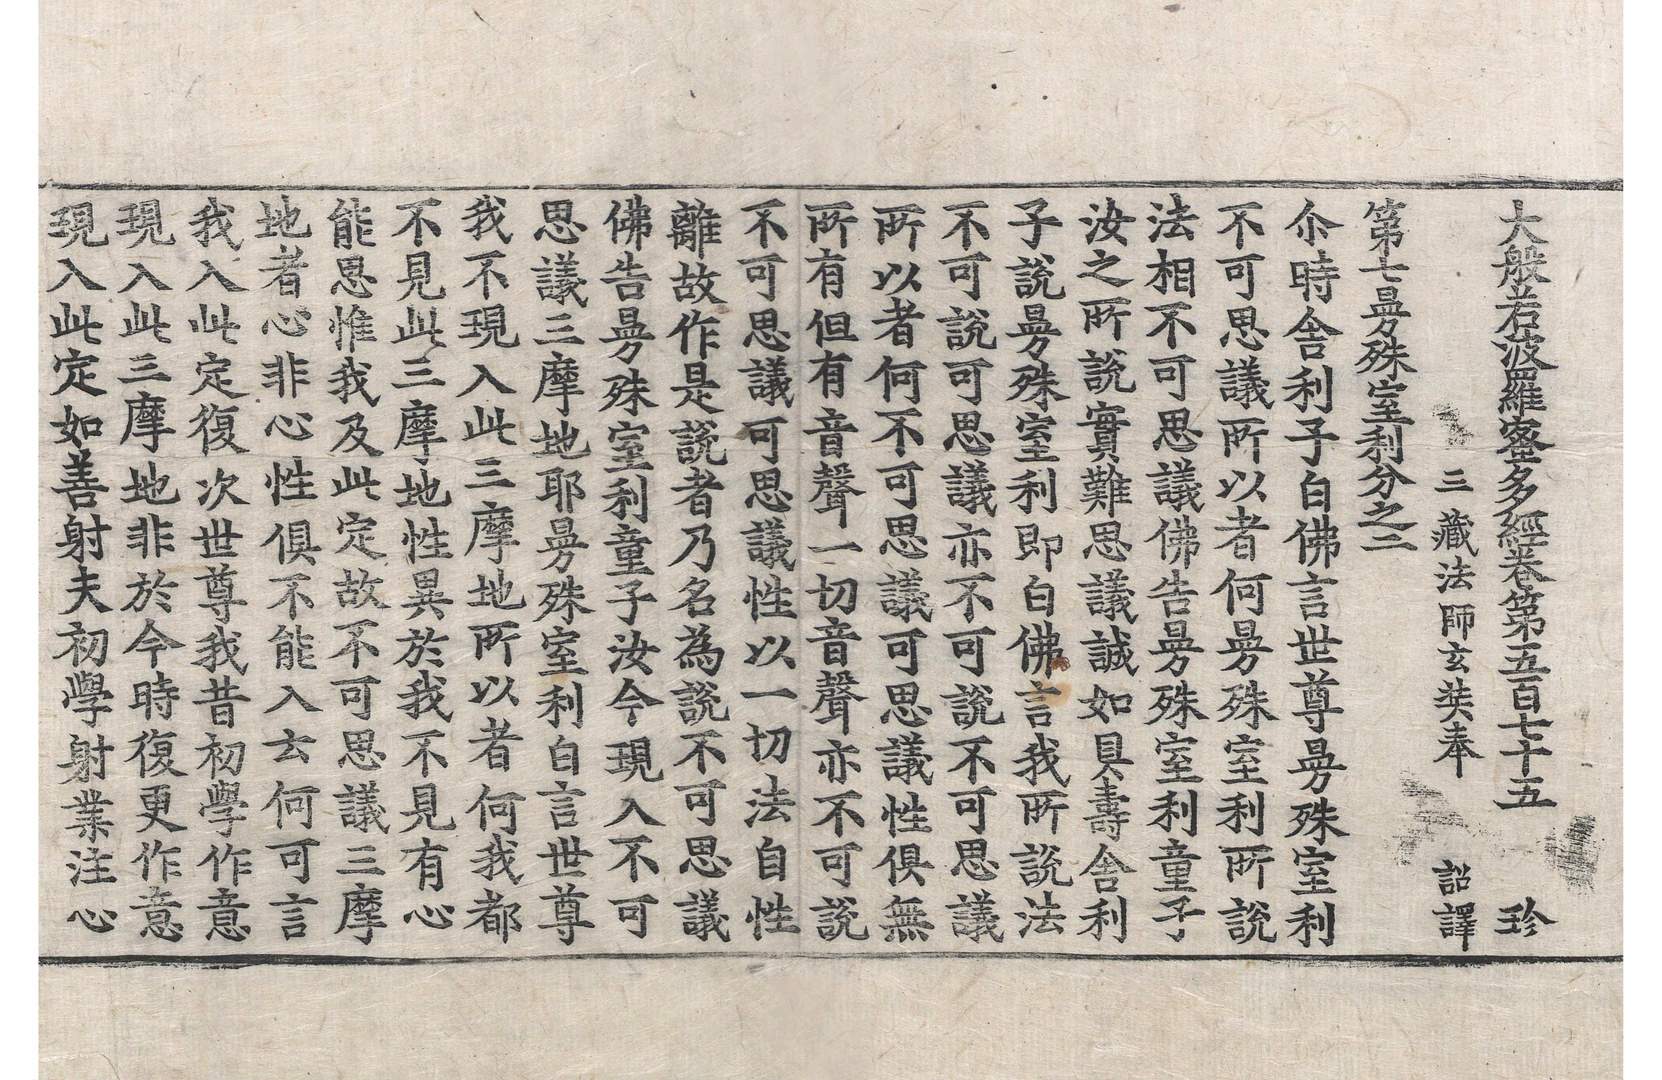 大般若波羅蜜多經卷第五百七十五　珍
三藏法師玄奘奉　詔譯
第七曼殊室利分之二
尒時舍利子白佛言世尊曼殊室利
不可思議所以者何曼殊室利所說
法相不可思議佛告曼殊室利童子
汝之所說實難思議誠如具壽舍利
子說曼殊室利即白佛言我所說法
不可說可思議亦不可說不可思議
所以者何不可思議可思議性俱無
所有但有音聲一切音聲亦不可說
不可思議可思議性以一切法自性
離故作是說者乃名為說不可思議
佛告曼殊室利童子汝今現入不可
思議三摩地耶曼殊室利白言世尊
我不現入此三摩地所以者何我都
不見此三摩地性異於我不見有心
能思惟我及此定故不可思議三摩
地者心非心性俱不能入云何可言
我入此定復次世尊我昔初學作意
現入此三摩地非於今時復更作意
現入此定如善射夫初學射業注心